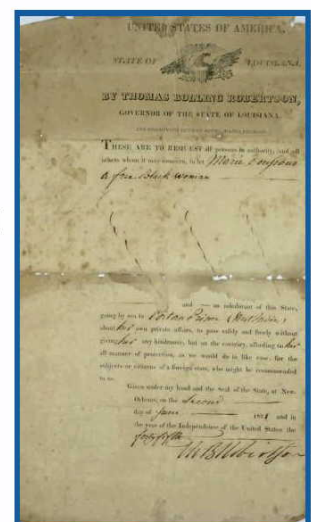 UNITED STATES OF AMERICA.
STATE OF LOUISIANA.
BY THOMAS BOLLING ROBERTSON,
GOVERNOR OF THE STATE OF LOUISIANA.
THESE ARE TO REQUEST all persons in authority, and all
others whom it may concern, to let Marie
A free Black Woman
and an inhabitant of this State,
going by sea to Port au Prince
about her own private affairs, to pass safely and freely without
giving her any hindrance, but on the contrary, affording to her
all manner of protection, as we would do in like case, for the
subjects or citizens of a foreign state, who might be recommended
to us.
Given under my hand and the Seal of the State, at New-
Orleans, on the Second
day of June 1821 and in
the year of the Independence of the United States the
forty fifth